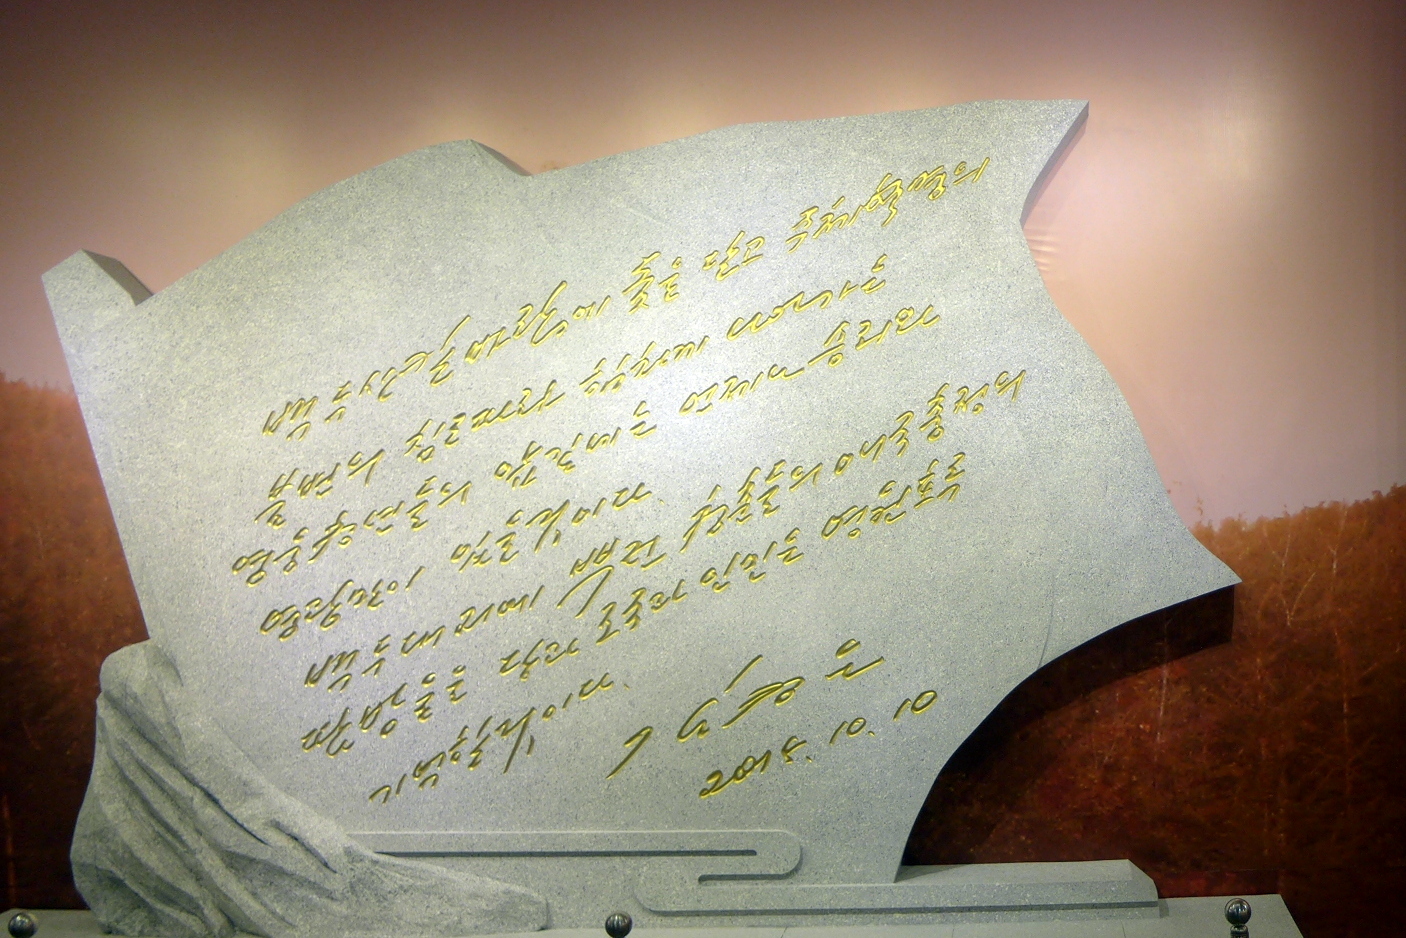 백두산칼바람에 돛을 달고 주체혁명의
불변의 침로따라 힘차게 나아가는
영웅청년들의 앞길에는 언제나 승리와
영광만이 있을것이다.
백두대지에 청춘들의 애국충정의
땀방울을 당과 조국과 인민은 영원토록
기억할것이다.
김정은
2015. 10. 10